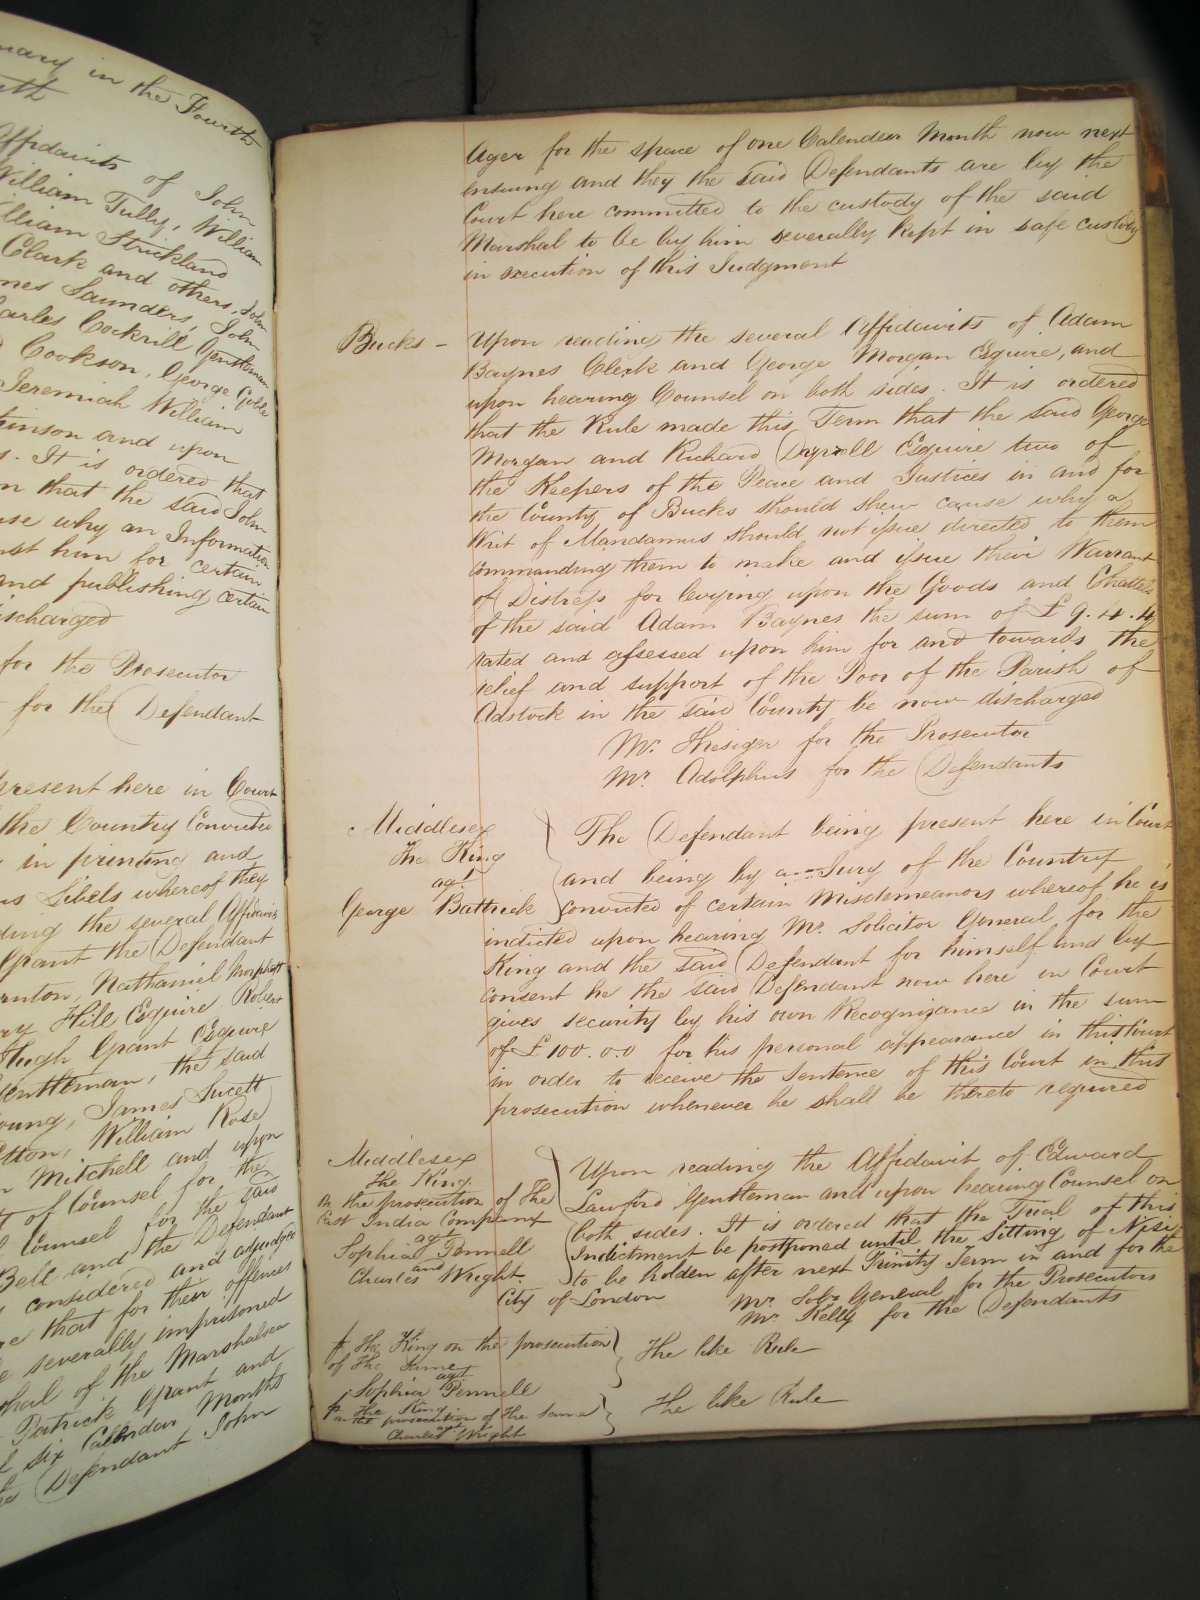 mary in the Fourth
Affidavits of John
William Tully, William
William Strickland
Clark and others, John
James Saunders, John
Charles Cockrill Gentleman
Cookson, George Goble
Jeremiah William
and upon
It is ordered that
that the said John
cause why an Information
against him for certain
and publishing certain
discharged
for the Prosecutor
for the Defendant
present here in Court
the Country Convicted
in printing and
Libels whereof they
the several Affidavits
Grant the Defendant
Nathaniel
Hill Esquire Robert
Hugh Grant Esquire
Gentleman, the said
Young, James
William Rose
Mitchell and upon
of Counsel for the
Counsel for the said
Bell and the Defendant
considered and adjudged
that for their offences
severally imprisoned
Marshal of the Marshalsea
Patrick Grant and
six Calendar Months
the Defendant John
Ager for the space of one Calendar Month now next
ensuing and they the said Defendants are by the
Court here committed to the custody of the said
Marshal to be by him severally kept in safe custody
in execution of this Judgment
Bucks – Upon reading the several Affidavits of Adam
Baynes Clerk and George Morgan Esquire, and
upon hearing Counsel on both sides. It is ordered
that the Rule made this Term that the said George
Morgan and Richard Dayrell Esquire two of
the Keepers of the Peace and Justices in and for
the County of Bucks should shew cause why a
Writ of Mandamus should not issue directed to them
commanding them to make and issue their Warrant
of Distress for levying upon the Goods and Chattels
of the said Adam Baynes the sum of £9.4.4
rated and assessed upon him for and towards the
relief and support of the Poor of the Parish of
Adstock in the said County be now discharged
Mr. Thesiger for the Prosecutor
Mr. Adolphus for the Defendants
Middlesex
The King
agt
George Battrick
The Defendant being present here in Court
and being by a Jury of the Country
convicted of certain Misdemeanors whereof he is
indicted upon hearing Mr. Solicitor General for the
King and the said Defendant for himself and by
consent he the said Defendant now here in Court
gives security by his own Recognizance in the sum
of £100.0.0 for his personal appearance in this Court
in order to receive the Sentence of this Court in this
prosecution whenever he shall be thereto required
Middlesex
The King
on the prosecution of The
East India Company
agt
Sophia Pennell
and
Charles Wright
Upon reading the Affidavit of Edward
Lawford Gentleman and upon hearing Counsel on
both sides. It is ordered that the Trial of this
Indictment be postponed until the Sitting of Nisi
to be holden after next Trinity Term in and for the
City of London
Mr. Solr General for the Prosecutors
Mr. Kelly for the Defendants
The King on the prosecution
of The Same
agt
Sophia Pennell
The like Rule
The King
on the prosecution of The Same
agt
Charles Wright
The like Rule